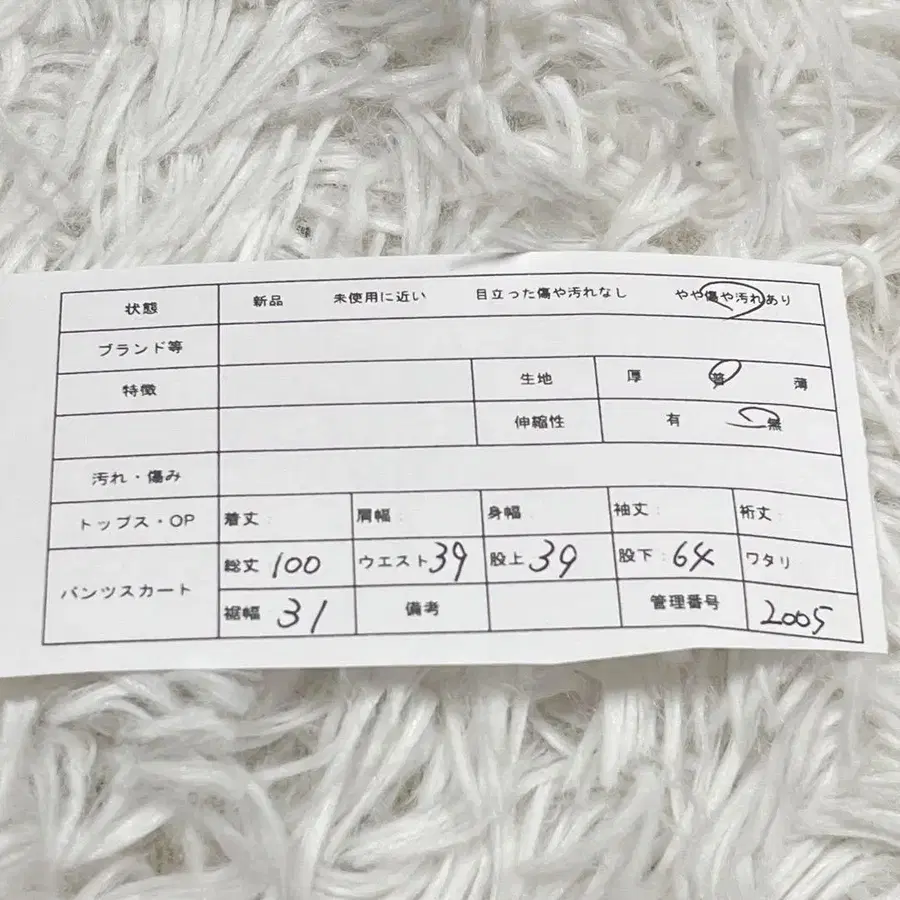 状態 新品 未使用に近い 目立った傷や汚れなし やや傷や汚れあり
ブランド等
特徴 生地 厚 普 薄
伸縮性 有 無
汚れ・傷み
トップス・OP 着丈: 肩幅: 身幅: 袖丈: 裄丈:
パンツスカート 総丈 100 ウエスト 39 股上 39 股下: 64 ワタリ
裾幅 31 備考 管理番号 2005